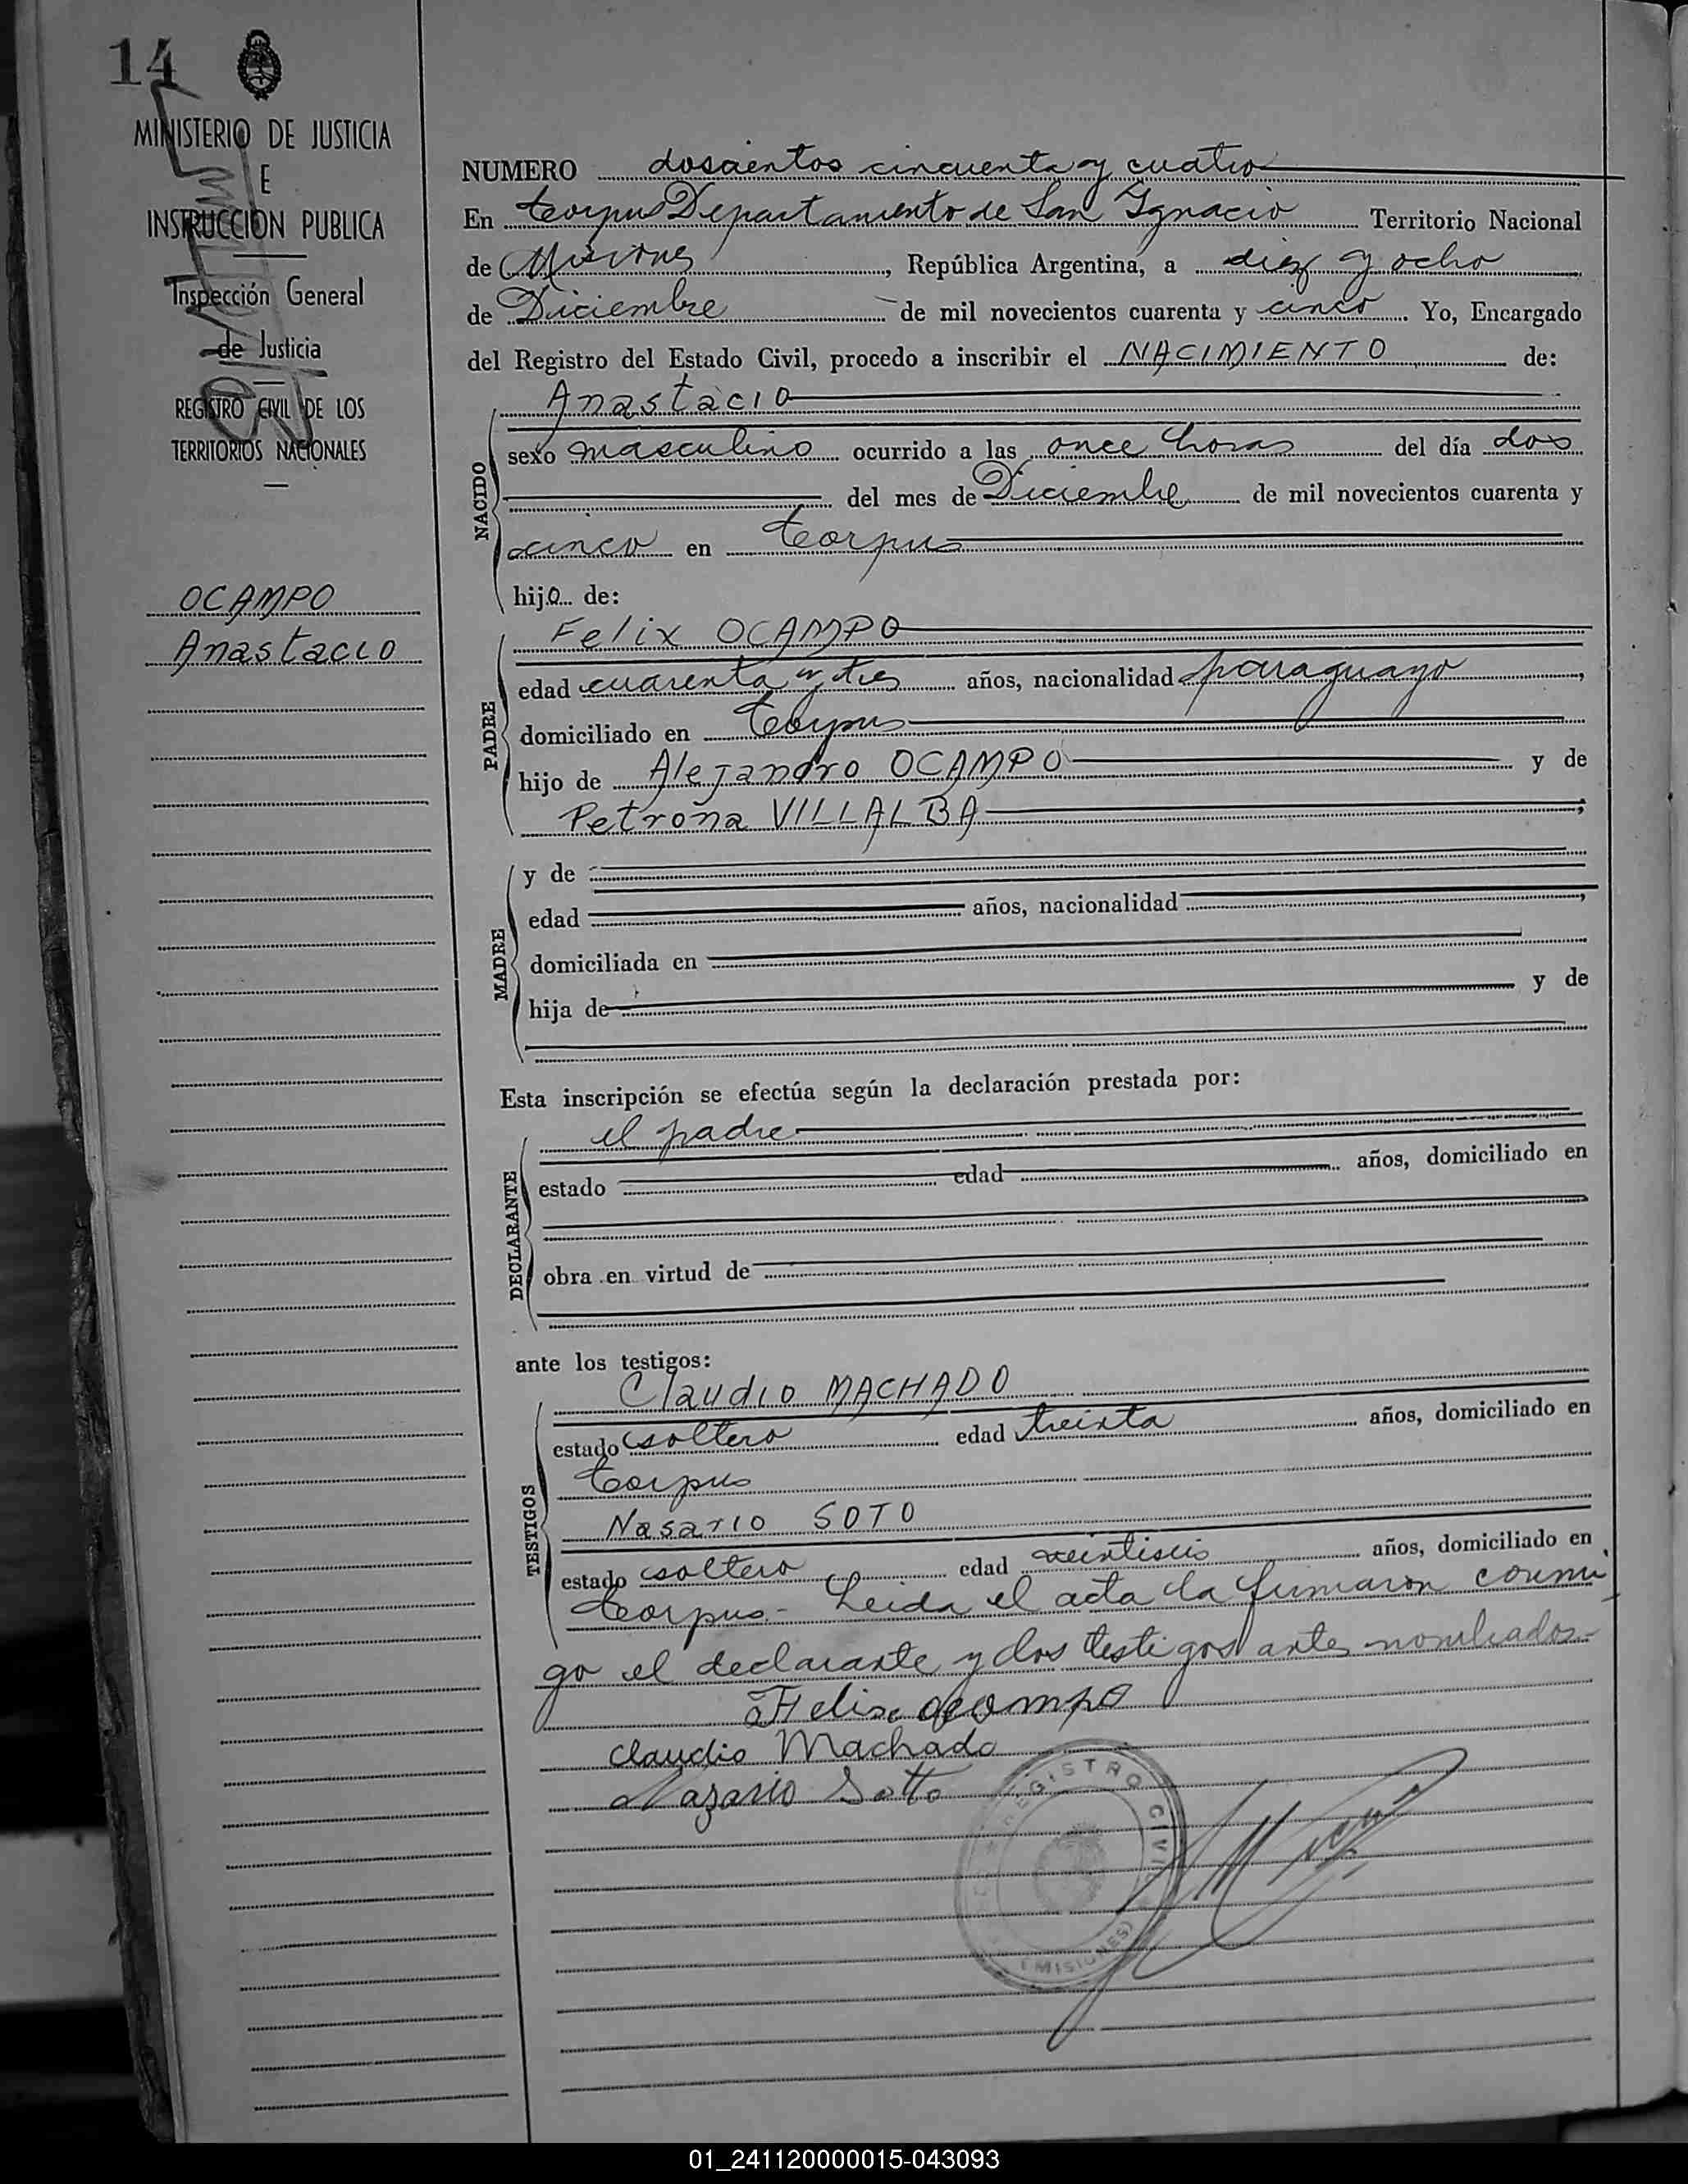 14
MINISTERIO DE JUSTICIA
E
INSTRUCCION PUBLICA
Inspección General
de Justicia
REGISTRO CIVIL DE LOS
TERRITORIOS NACIONALES
OCAMPO
Anastacio
NUMERO doscientos cincuenta y cuatro
En Corpus Departamento de San Ignacio Territorio Nacional
de Misiones, República Argentina, a diez y ocho
de Diciembre de mil novecientos cuarenta y cinco. Yo, Encargado
del Registro del Estado Civil, procedo a inscribir el NACIMIENTO de:
NACIDO
Anastacio
sexo masculino ocurrido a las once horas del día dos
del mes de Diciembre de mil novecientos cuarenta y
cinco en Corpus
hijo de:
PADRE
Felix OCAMPO
edad cuarenta y tres años, nacionalidad paraguayo,
domiciliado en Corpus
hijo de Alejandro OCAMPO y de
Petrona VILLALBA;
MADRE
y de
edad años, nacionalidad,
domiciliada en
hija de y de
Esta inscripción se efectúa según la declaración prestada por:
DECLARANTE
el padre
estado edad años, domiciliado en
obra en virtud de
ante los testigos:
TESTIGOS
Claudio MACHADO
estado soltero edad treinta años, domiciliado en
Corpus
Nasario SOTO
estado soltero edad veintiseis años, domiciliado en
Corpus.- Leida el acta la firmaron conmi
go el declarante y los testigos antes nombrados.-
Felix ocampo
Claudio Machado
Nazario Sotto
REGISTRO CIVIL
(MISIONES)
01_241120000015-043093